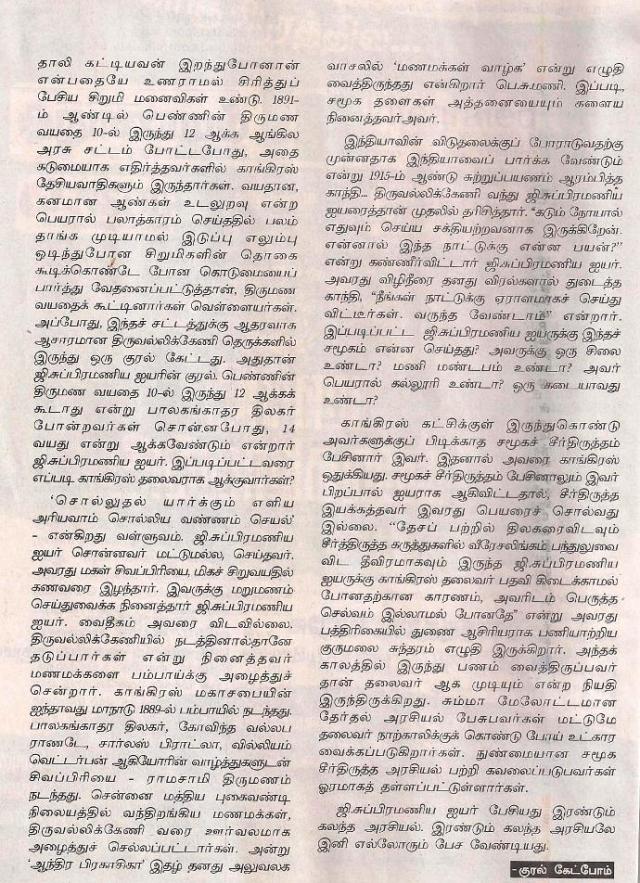 தாலி கட்டியவன் இறந்துபோனான்
என்பதையே உணராமல் சிரித்துப்
பேசிய சிறுமி மனைவிகள் உண்டு. 1891-
ம் ஆண்டில் பெண்ணின் திருமண
வயதை 10-ல் இருந்து 12 ஆக்க ஆங்கில
அரசு சட்டம் போட்டபோது, அதை
கடுமையாக எதிர்த்தவர்களில் காங்கிரஸ்
தேசியவாதிகளும் இருந்தார்கள். வயதான,
கனமான ஆண்கள் உடலுறவு என்ற
பெயரால் பலாத்காரம் செய்ததில் பலம்
தாங்க முடியாமல் இடுப்பு எலும்பு
ஒடிந்துபோன சிறுமிகளின் தொகை
கூடிக்கொண்டே போன கொடுமையைப்
பார்த்து வேதனைப்பட்டுத்தான், திருமண
வயதைக் கூட்டினார்கள் வெள்ளையர்கள்.
அப்போது, இந்தச் சட்டத்துக்கு ஆதரவாக
ஆசாரமான திருவல்லிக்கேணி தெருக்களில்
இருந்து ஒரு குரல் கேட்டது. அதுதான்
ஜி.சுப்பிரமணிய ஐயரின் குரல். பெண்ணின்
திருமண வயதை 10-ல் இருந்து 12 ஆக்கக்
கூடாது என்று பாலகங்காதர திலகர்
போன்றவர்கள் சொன்னபோது, 14
வயது என்று ஆக்கவேண்டும் என்றார்
ஜி.சுப்பிரமணிய ஐயர். இப்படிப்பட்டவரை
எப்படி காங்கிரஸ் தலைவராக ஆக்குவார்கள்?
‘சொல்லுதல் யார்க்கும் எளிய
அரியவாம் சொல்லிய வண்ணம் செயல்’
- என்கிறது வள்ளுவம். ஜி.சுப்பிரமணிய
ஐயர் சொன்னவர் மட்டுமல்ல, செய்தவர்.
அவரது மகள் சிவப்பிரியை, மிகச் சிறுவயதில்
கணவரை இழந்தார். இவருக்கு மறுமணம்
செய்துவைக்க நினைத்தார் ஜி.சுப்பிரமணிய
ஐயர். வைதீகம் அவரை விடவில்லை.
திருவல்லிக்கேணியில் நடத்தினால்தானே
தடுப்பார்கள் என்று நினைத்தவர்
மணமக்களை பம்பாய்க்கு அழைத்துச்
சென்றார். காங்கிரஸ் மகாசபையின்
ஐந்தாவது மாநாடு 1889-ல் பம்பாயில் நடந்தது.
பாலகங்காதர திலகர், கோவிந்த வல்லப
ராணடே, சார்லஸ் பிராட்லா, வில்லியம்
வெட்டர்பன் ஆகியோரின் வாழ்த்துகளுடன்
சிவப்பிரியை – ராமசாமி திருமணம்
நடந்தது. சென்னை மத்திய புகைவண்டி
நிலையத்தில் வந்திறங்கிய மணமக்கள்,
திருவல்லிக்கேணி வரை ஊர்வலமாக
அழைத்துச் செல்லப்பட்டார்கள். அன்று
‘ஆந்திர பிரகாசிகா’ இதழ் தனது அலுவலக
வாசலில் ‘மணமக்கள் வாழ்க’ என்று எழுதி
வைத்திருந்தது என்கிறார் பெ.சுமணி. இப்படி,
சமூக தளைகள் அத்தனையையும் களைய
நினைத்தவர் அவர்.
இந்தியாவின் விடுதலைக்குப் போராடுவதற்கு
முன்னதாக இந்தியாவைப் பார்க்க வேண்டும்
என்று 1915-ம் ஆண்டு சுற்றுப்பயணம் ஆரம்பித்த
காந்தி... திருவல்லிக்கேணி வந்து ஜி.சுப்பிரமணிய
ஐயரைத்தான் முதலில் தரிசித்தார். “கடும் நோயால்
எதுவும் செய்ய சக்தியற்றவனாக இருக்கிறேன்.
என்னால் இந்த நாட்டுக்கு என்ன பயன்?”
என்று கண்ணீர்விட்டார் ஜி.சுப்பிரமணிய ஐயர்.
அவரது விழிநீரை தனது விரல்களால் துடைத்த
காந்தி, “நீங்கள் நாட்டுக்கு ஏராளமாகச் செய்து
விட்டீர்கள். வருந்த வேண்டாம்” என்றார்.
இப்படிப்பட்ட ஜி.சுப்பிரமணிய ஐயருக்கு இந்தச்
சமூகம் என்ன செய்தது? அவருக்கு ஒரு சிலை
உண்டா? மணி மண்டபம் உண்டா? அவர்
பெயரால் கல்லூரி உண்டா? ஒரு கடையாவது
உண்டா?
காங்கிரஸ் கட்சிக்குள் இருந்துகொண்டு
அவர்களுக்குப் பிடிக்காத சமூகச் சீர்திருத்தம்
பேசினார் இவர். இதனால் அவரை காங்கிரஸ்
ஒதுக்கியது. சமூகச் சீர்திருத்தம் பேசினாலும் இவர்
பிறப்பால் ஐயராக ஆகிவிட்டதால், சீர்திருத்த
இயக்கத்தவர் இவரது பெயரைச் சொல்வது
இல்லை. “தேசப் பற்றில் திலகரைவிடவும்
சீர்த்திருத்த கருத்துகளில் வீரேசலிங்கம் பந்துலுவை
விட தீவிரமாகவும் இருந்த ஜி.சுப்பிரமணிய
ஐயருக்கு காங்கிரஸ் தலைவர் பதவி கிடைக்காமல்
போனதற்கான காரணம், அவரிடம் பெருத்த
செல்வம் இல்லாமல் போனதே” என்று அவரது
பத்திரிகையில் துணை ஆசிரியராக பணியாற்றிய
குருமலை சுந்தரம் எழுதி இருக்கிறார். அந்தக்
காலத்தில் இருந்து பணம் வைத்திருப்பவர்
தான் தலைவர் ஆக முடியும் என்ற நியதி
இருந்திருக்கிறது. சும்மா மேலோட்டமான
தேர்தல் அரசியல் பேசுபவர்கள் மட்டுமே
தலைவர் நாற்காலிக்குக் கொண்டு போய் உட்கார
வைக்கப்படுகிறார்கள். நுண்மையான சமூக
சீர்திருத்த அரசியல் பற்றி கவலைப்படுபவர்கள்
ஓரமாகத் தள்ளப்பட்டுள்ளார்கள்.
ஜி.சுப்பிரமணிய ஐயர் பேசியது இரண்டும்
கலந்த அரசியல். இரண்டும் கலந்த அரசியலே
இனி எல்லோரும் பேச வேண்டியது.
-குரல் கேட்போம்